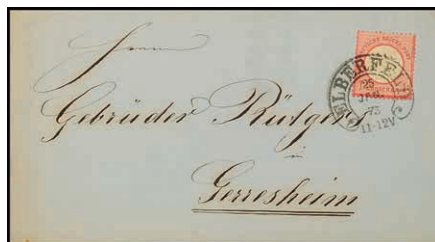 Herrn
Gebrüder Rütger
in
Gerresheim
ELBERFELD
25
73
11-12V